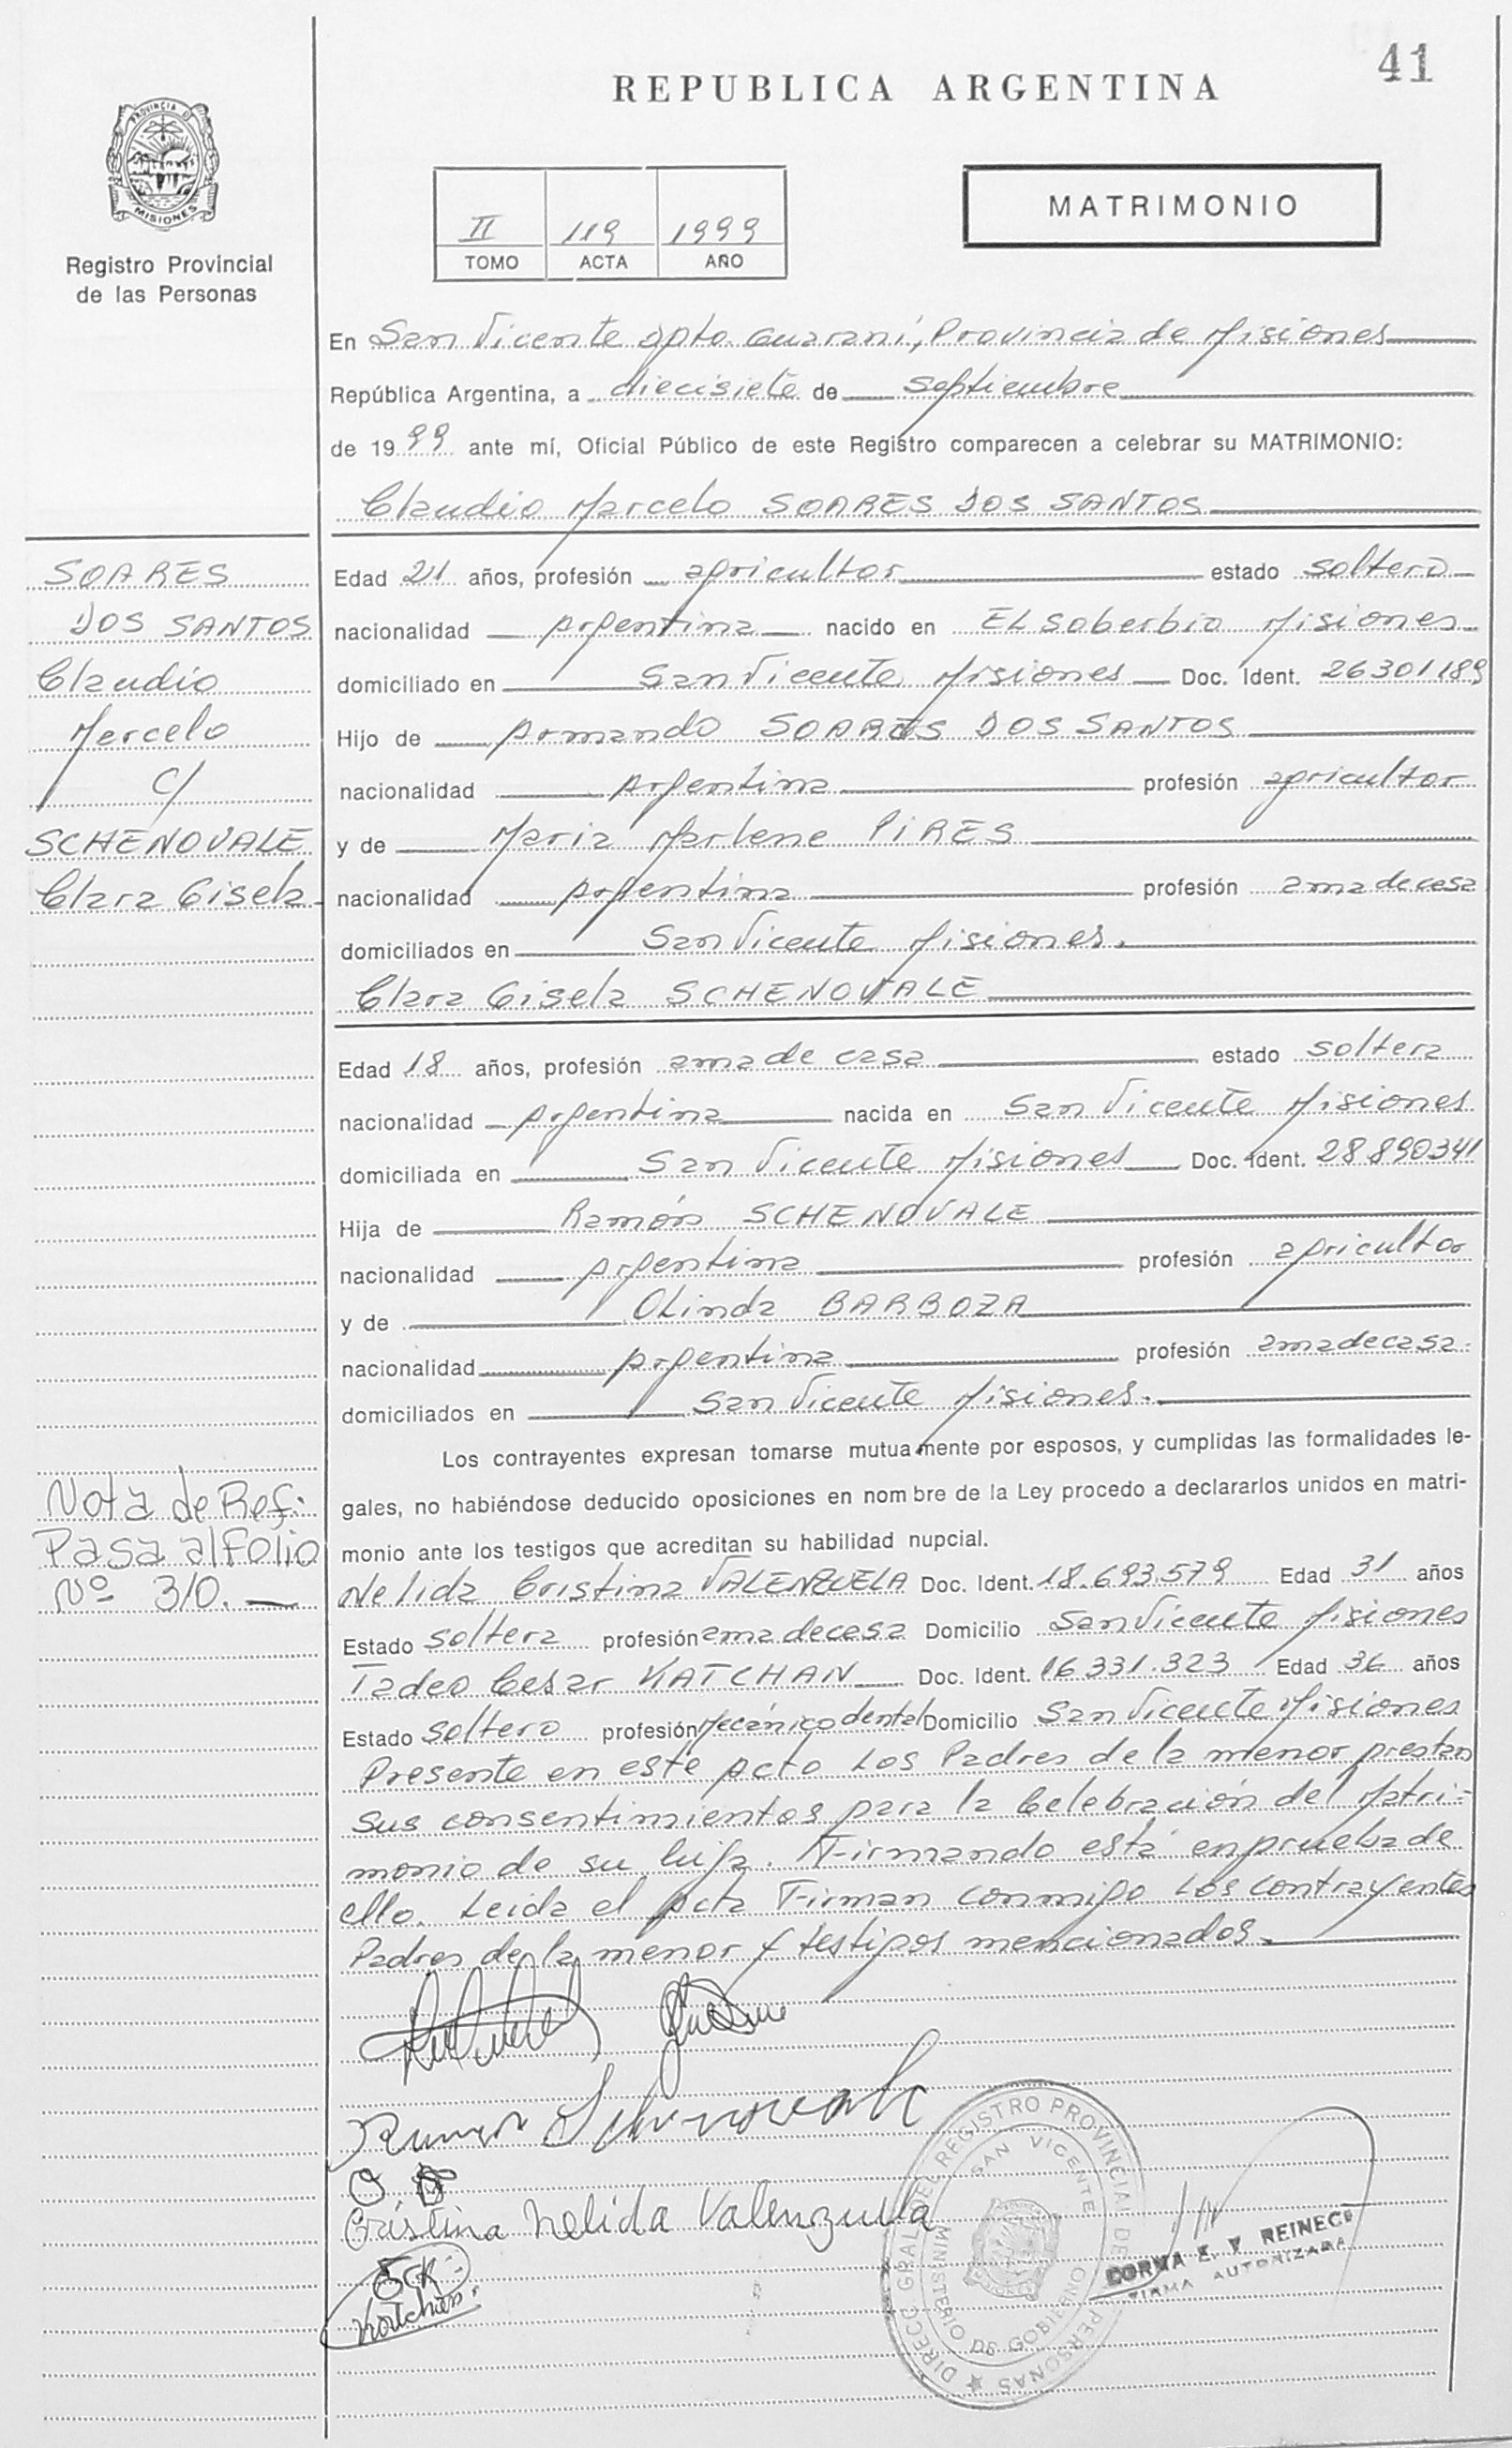 41
REPUBLICA ARGENTINA
PROVINCIA D
MISIONES
Registro Provincial
de las Personas
II 119 1999
TOMO ACTA AÑO
MATRIMONIO
En San Vicente Dpto. Guaraní, Provincia de Misiones
República Argentina, a diecisiete de septiembre
de 1999 ante mí, Oficial Público de este Registro comparecen a celebrar su MATRIMONIO:
Claudio Marcelo SOARES DOS SANTOS
SOARES
DOS SANTOS
Claudio
Marcelo
C/
SCHENOVALE
Clara Gisela
Edad 21 años, profesión agricultor estado soltero
nacionalidad Argentina nacido en EL Soberbio Misiones
domiciliado en San Vicente Misiones Doc. Ident. 26301189
Hijo de Armando SOARES DOS SANTOS
nacionalidad Argentina profesión agricultor
y de Maria Marlene PIRES
nacionalidad Argentina profesión ama de casa
domiciliados en San Vicente Misiones.
Clara Gisela SCHENOVALE
Edad 18 años, profesión ama de casa estado soltera
nacionalidad Argentina nacida en San Vicente Misiones
domiciliada en San Vicente Misiones Doc. Ident. 28890341
Hija de Ramón SCHENOVALE
nacionalidad Argentina profesión agricultor
y de OLinda BARBOZA
nacionalidad Argentina profesión ama de casa
domiciliados en San Vicente Misiones.
Los contrayentes expresan tomarse mutuamente por esposos, y cumplidas las formalidades le-
gales, no habiéndose deducido oposiciones en nombre de la Ley procedo a declararlos unidos en matri-
monio ante los testigos que acreditan su habilidad nupcial.
Nota de Ref:
Pasa al Folio
Nº 310.
Nelida Cristina VALENZUELA Doc. Ident. 18.693.579 Edad 31 años
Estado soltera profesión ama de casa Domicilio San Vicente Misiones
Tadeo Cesar KATCHAN Doc. Ident. 16.331.323 Edad 36 años
Estado soltero profesión Mecánico dental Domicilio San Vicente Misiones
Presente en este Acto Los Padres de la menor prestan
sus consentimientos para la Celebración del Matri-
monio de su hija. Firmando esta en prueba de
ello. Leida el Acta Firman conmigo Los contrayentes
Padres de la menor y testigos mencionados.
Ramon Schenovale
O B
Cristina Nelida Valenzuela
Katchan
DIREC. GRAL. DEL REGISTRO PROVINCIAL DE PERSONAS
SAN VICENTE
MINISTERIO DE GOBIERNO
DORMA E. V. REINECK
FIRMA AUTORIZADA